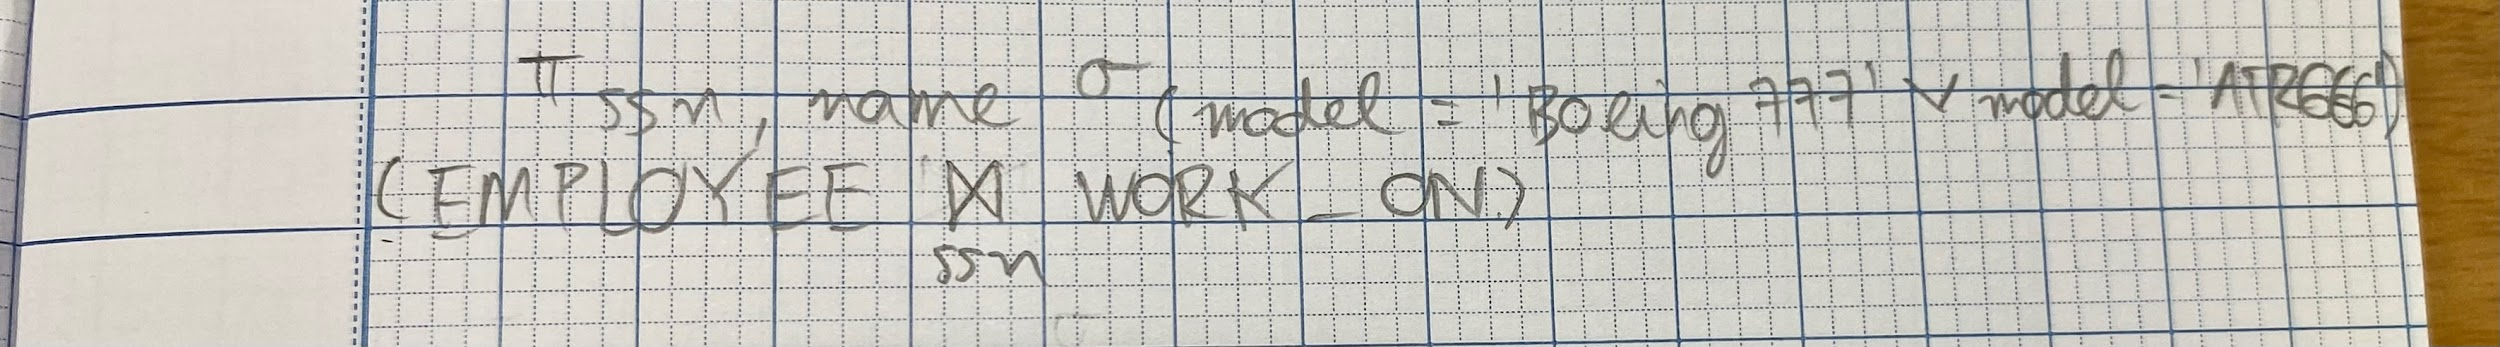 π ssn, name σ (model = 'Boeing 777' ∨ model = 'ATR666')
(EMPLOYEE ⋈ WORK_ON)
ssn